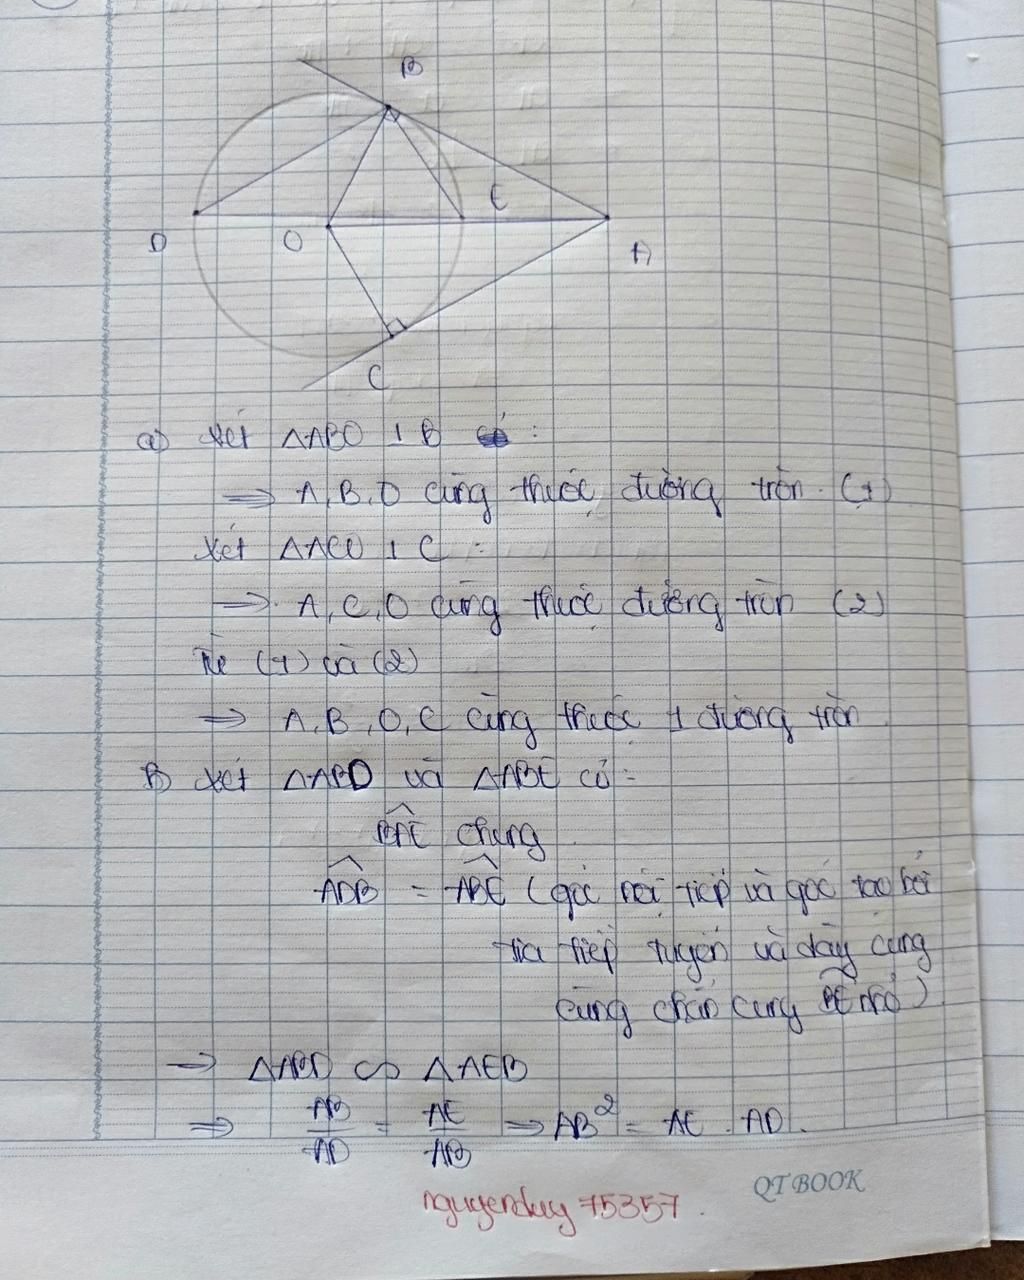 B
E
D
O
A
C
a) Xét △ABO ⊥ B có :
⟹ A, B, O cùng thuộc đường tròn. (1)
Xét △ACO ⊥ C :
⟹ A, C, O cùng thuộc đường tròn (2)
Từ (1) và (2)
⟹ A, B, O, C cùng thuộc 1 đường tròn
B) Xét △ABD và △ABE có :
BAE chung
ADB = ABE (góc nội tiếp và góc tạo bởi
tia tiếp tuyến và dây cung
cùng chắn cung BE nhỏ)
⟹ △ABD ∽ △AEB
⟹ AB/AD = AE/AB ⟹ AB² = AE . AD.
nguyenduy 75357.
QT BOOK